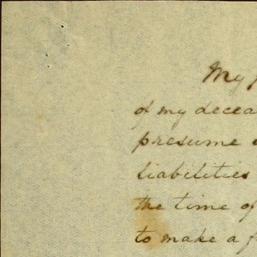 My
of my decea
presume
liabilities
the time of
to make a f